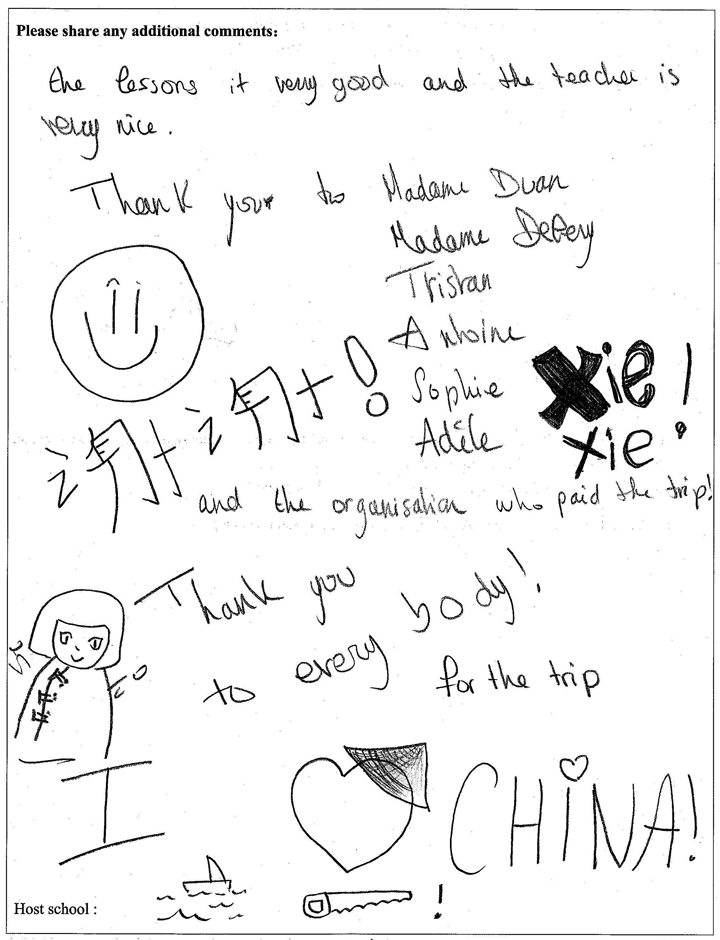 Please share any additional comments:
the lessons it very good and the teacher is
very nice.
Thank your to Madame Duan
Madame Debery
Tristan
Antoine
Sophie
Adèle
谢谢!
Xie!
xie!
and the organisation who paid the trip!
Thank you
to every body!
for the trip
I CHINA!
Host school :
!